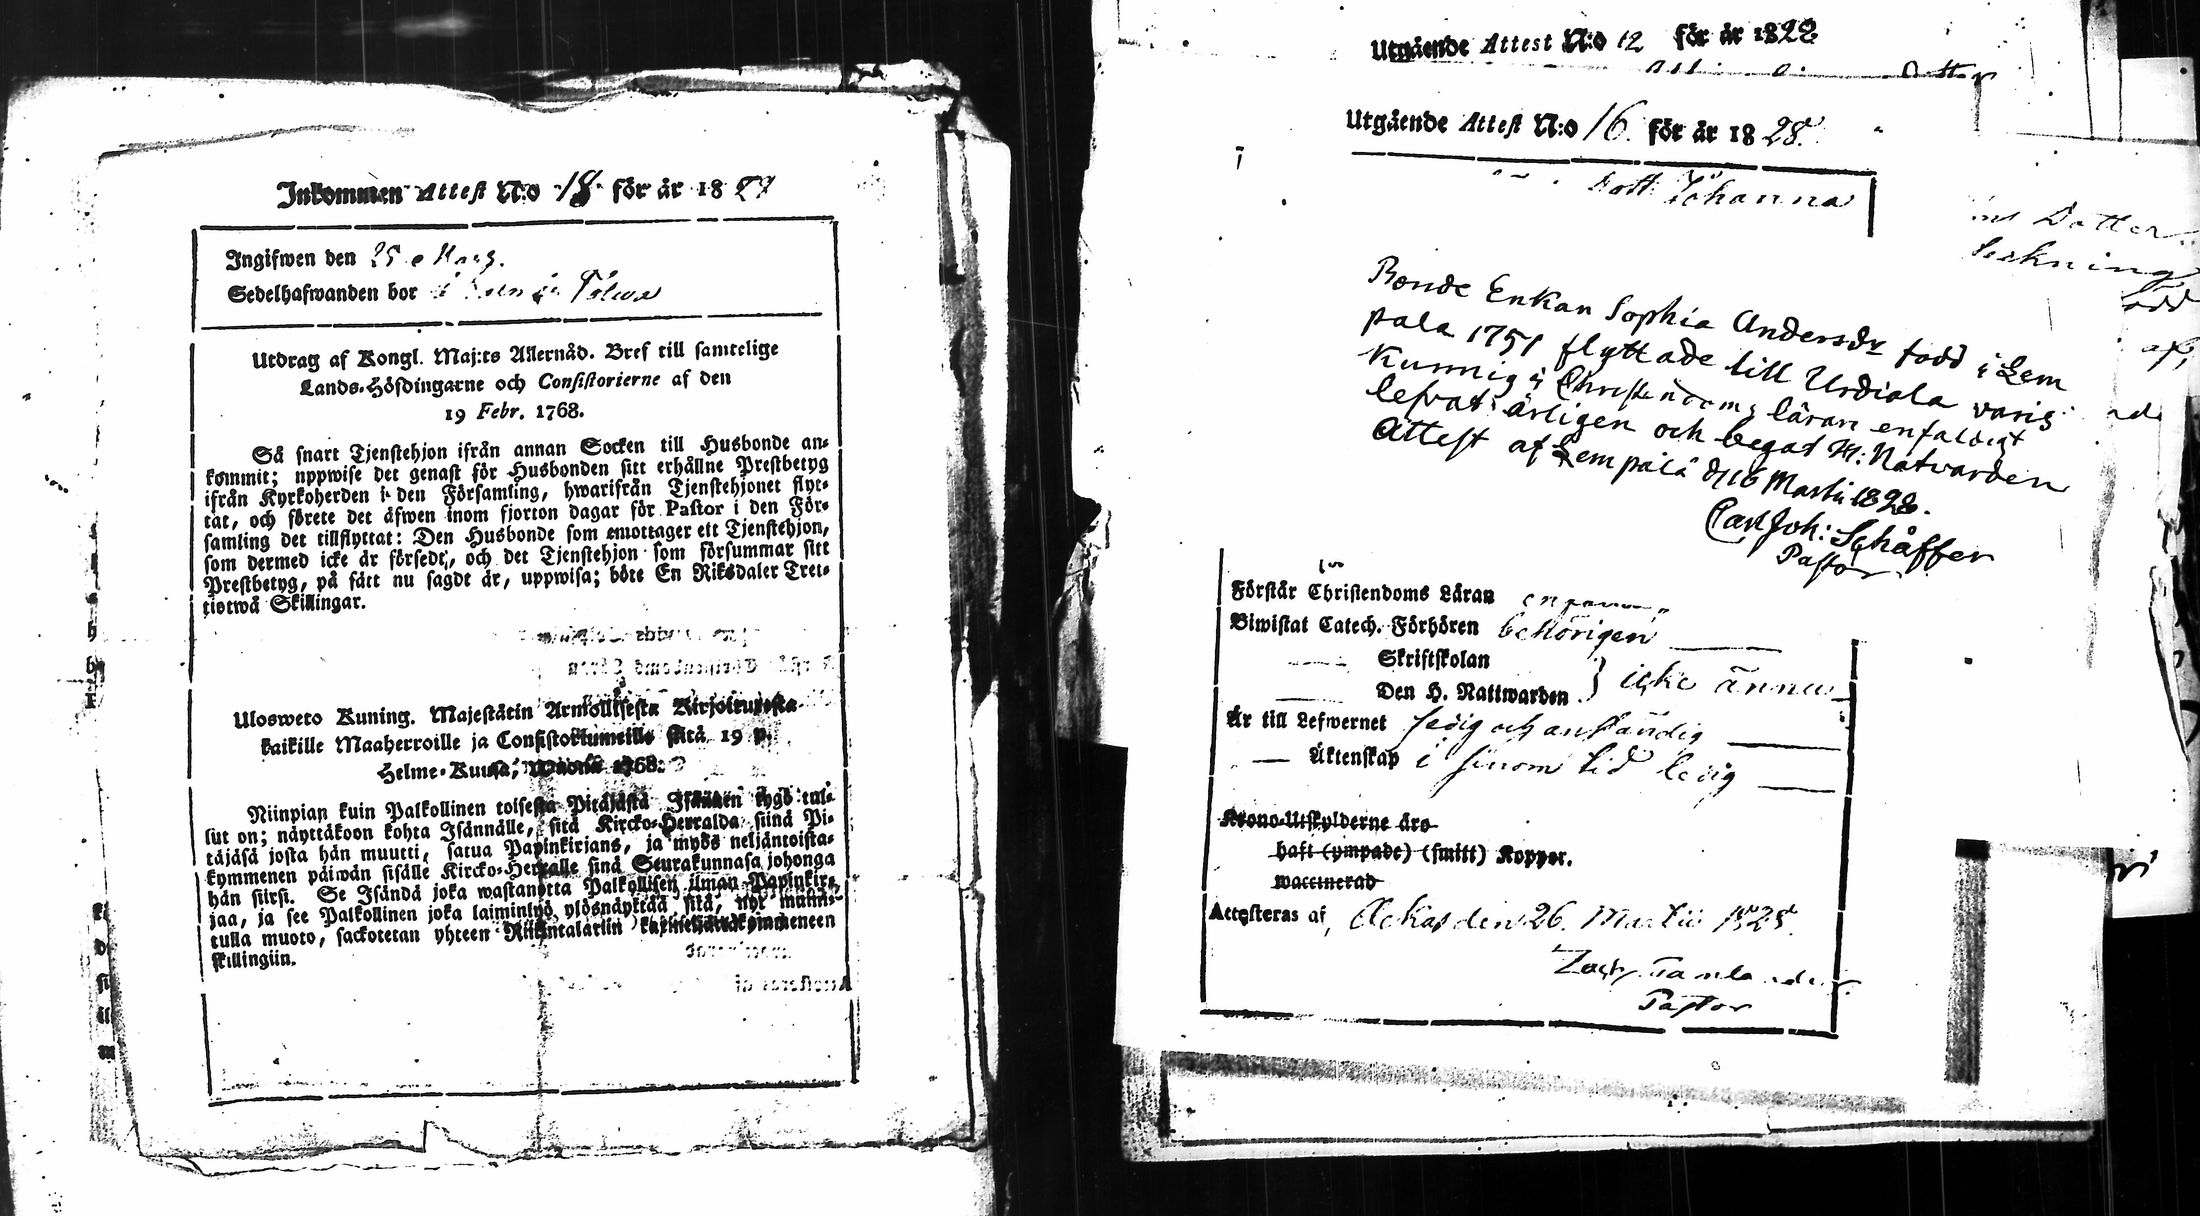 Inkommen Attest N:o 18 för år 1827
Ingifwen den 25 Mars.
Sedelhafwanden bor i
Utdrag af Kongl. Maj:ts Allernåd. Bref till samtelige
Lands-Höfdingarne och Consistorierne af den
19 Febr. 1768.
Så snart Tjenstehjon ifrån annan Socken till Husbonde an-
kommit; uppwise det genast för Husbonden sitt erhållne Prestbetyg
ifrån Kyrkoherden i den Församling, hwarifrån Tjenstehjonet flyt-
tat, och förete det äfwen inom fjorton dagar för Pastor i den För-
samling det tillflyttat: Den Husbonde som emottager ett Tjenstehjon,
som dermed icke är försedt, och det Tjenstehjon som försummar sitt
Prestbetyg, på sätt nu sagdt är, uppwisa; böte En Riksdaler Tret-
tiotwå Skillingar.
Ulosweto Kuning. Majestätin Armollisesta Kirjoituxesta
kaikille Maaherroille ja Consistoriumeille sitä 19 p.
Helme-Kuusa, Wuona 1768.
Niinpian kuin Palkollinen toisesta Pitäjästä Isännän tygö tul-
lut on; näyttäkoon kohta Isännälle, sitä Kircko-Herralda siinä Pi-
täjäsä josta hän muutti, saatua Papinkirjans, ja myös neljäntoista-
kymmenen päiwän sisälle Kircko-Herralle sinä Seurakunnasa johonga
hän siirsi. Se Isändä joka wastanotta Palkollisen ilman Papinkir-
jaa, ja see Palkollinen joka laiminlyö ylösnäyttää sitä, nyt mainit-
tulla muoto, sackotetan yhteen Riikintalariin kaxineljättäkymmeneen
skillingiin.
Utgående Attest N:o 12 för år 1828
Utgående Attest N:o 16. för år 1828.
Dott Johanna
ns Dotter
Bonde Enkan Sophia Andersdr född i Lem
pala 1751 flyttade till Urdiala varis
kunnig i Christendoms läran enfaldigt
lefvat ärligen och begat H: Natvarden
Attest af Lempälä d 16 Martii 1828.
Carl Joh: Schäffer
Pastor
Förstår Christendoms Läran
Biwistat Catech. Förhören behörigen
Skriftskolan
Den H. Nattwarden } icke ännu
Är till Lefwernet sedig och anständig
Äktenskap i sinom tid ledig
Krono-Utskylderne äro
haft (ympade) (smitt) Koppor.
waccinerad
Attesteras af, Ackas den 26. Martii 1828.
Pastor